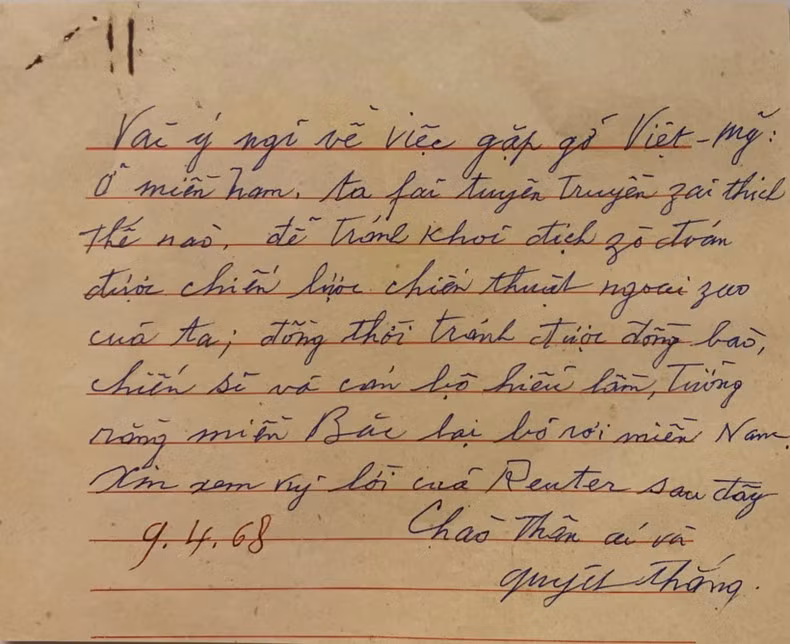 Vài ý ngĩ về việc gặp gỡ Việt - Mỹ:
Ở miền Nam, ta fải tuyên truyền zải thích
thế nào, để tránh khỏi địch zò đoán
được chiến lược chiến thuật ngoại zao
của ta; đồng thời tránh được đồng bào,
chiến sĩ và cán bộ hiểu lầm, tưởng
rằng miền Bắc lại bỏ rơi miền Nam.
Xin xem kỹ lời của Reuter sau đây
9.4.68 Chào thân ái và
quyết thắng.